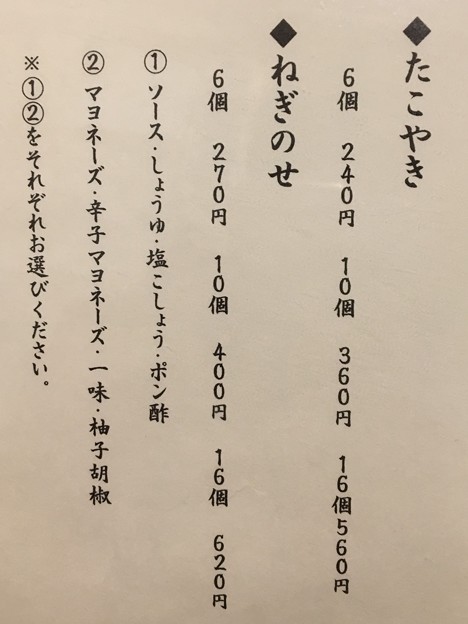 ◆たこやき
6個 240円 10個 360円 16個560円
◆ねぎのせ
6個 270円 10個 400円 16個 620円
① ソース・しょうゆ・塩こしょう・ポン酢
② マヨネーズ・辛子マヨネーズ・一味・柚子胡椒
※①②をそれぞれお選びください。